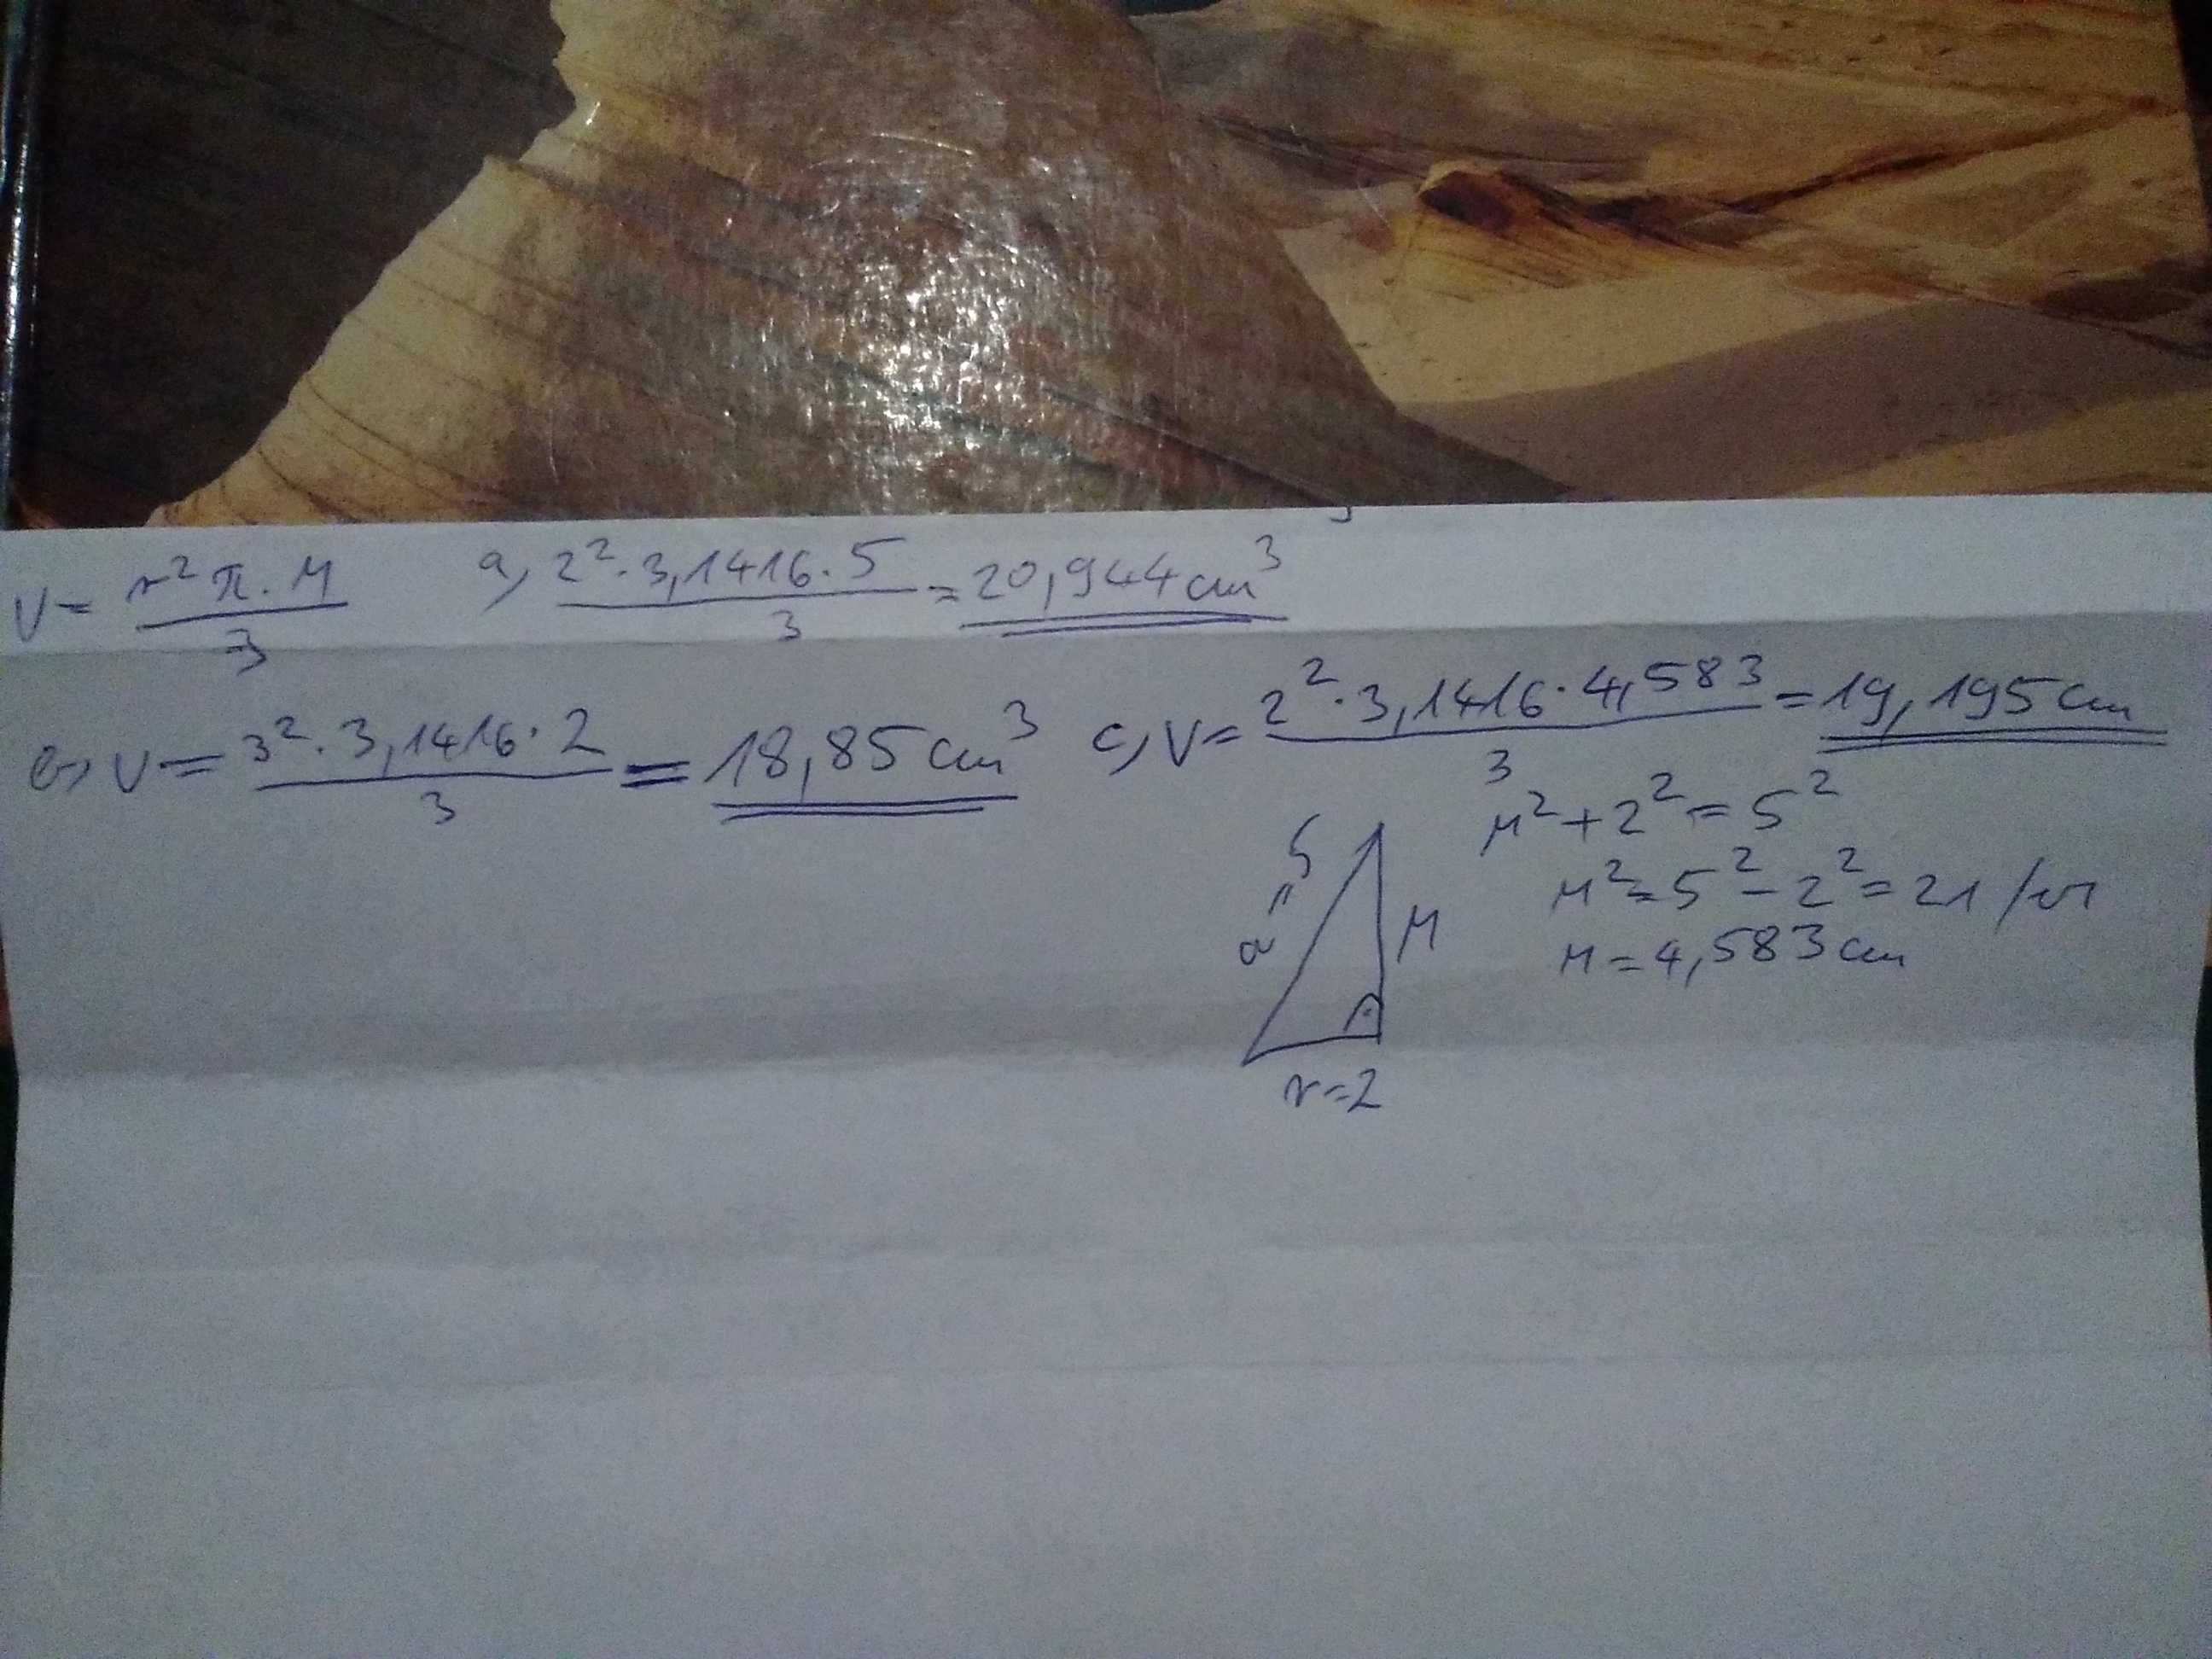 V = r²π·M / 3    a, 2²·3,1416·5 / 3 = 20,944 cm³
b, V = 3²·3,1416·2 / 3 = 18,85 cm³    c, V = 2²·3,1416·4,583 / 3 = 19,195 cm
M² + 2² = 5²
M² = 5² - 2² = 21 /√
M = 4,583 cm
a = 5
M
r = 2